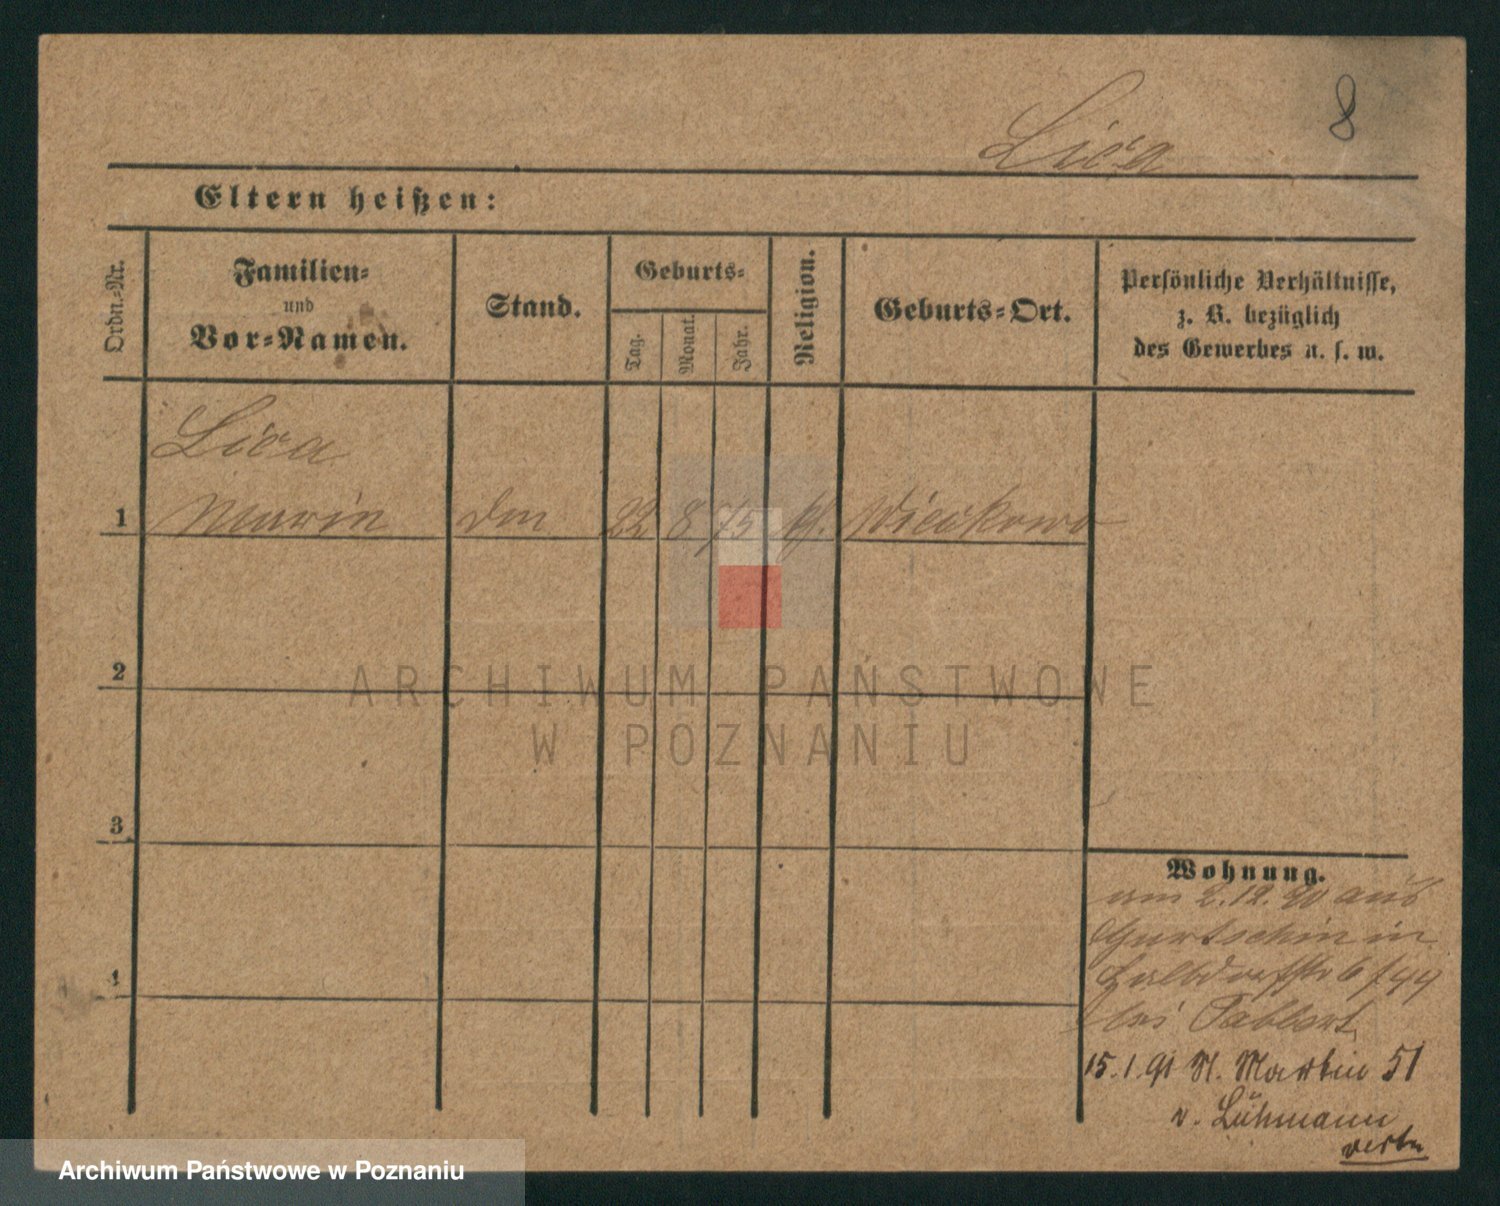 8
Lica
Eltern heißen:
Ordn.-Nr.
Familien-
und
Vor-Namen.
Stand.
Geburts-
Tag.
Monat.
Jahr.
Religion.
Geburts-Ort.
Persönliche Verhältnisse,
z. B. bezüglich
des Gewerbes u. s. w.
Lica
1 Marie 22 8 75 k. Wieckowo
2
3
4
Wohnung.
am 2.12.90 aus
Gurtschin in
Halbdorfstr 6
bei Tabbert
15.1.91 St. Martin 51
v. Lühmann
ARCHIWUM PAŃSTWOWE
W POZNANIU
Archiwum Państwowe w Poznaniu